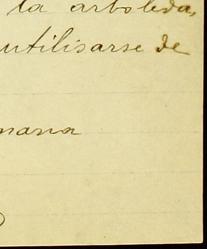 la arboleda,
utilisarse de
mana